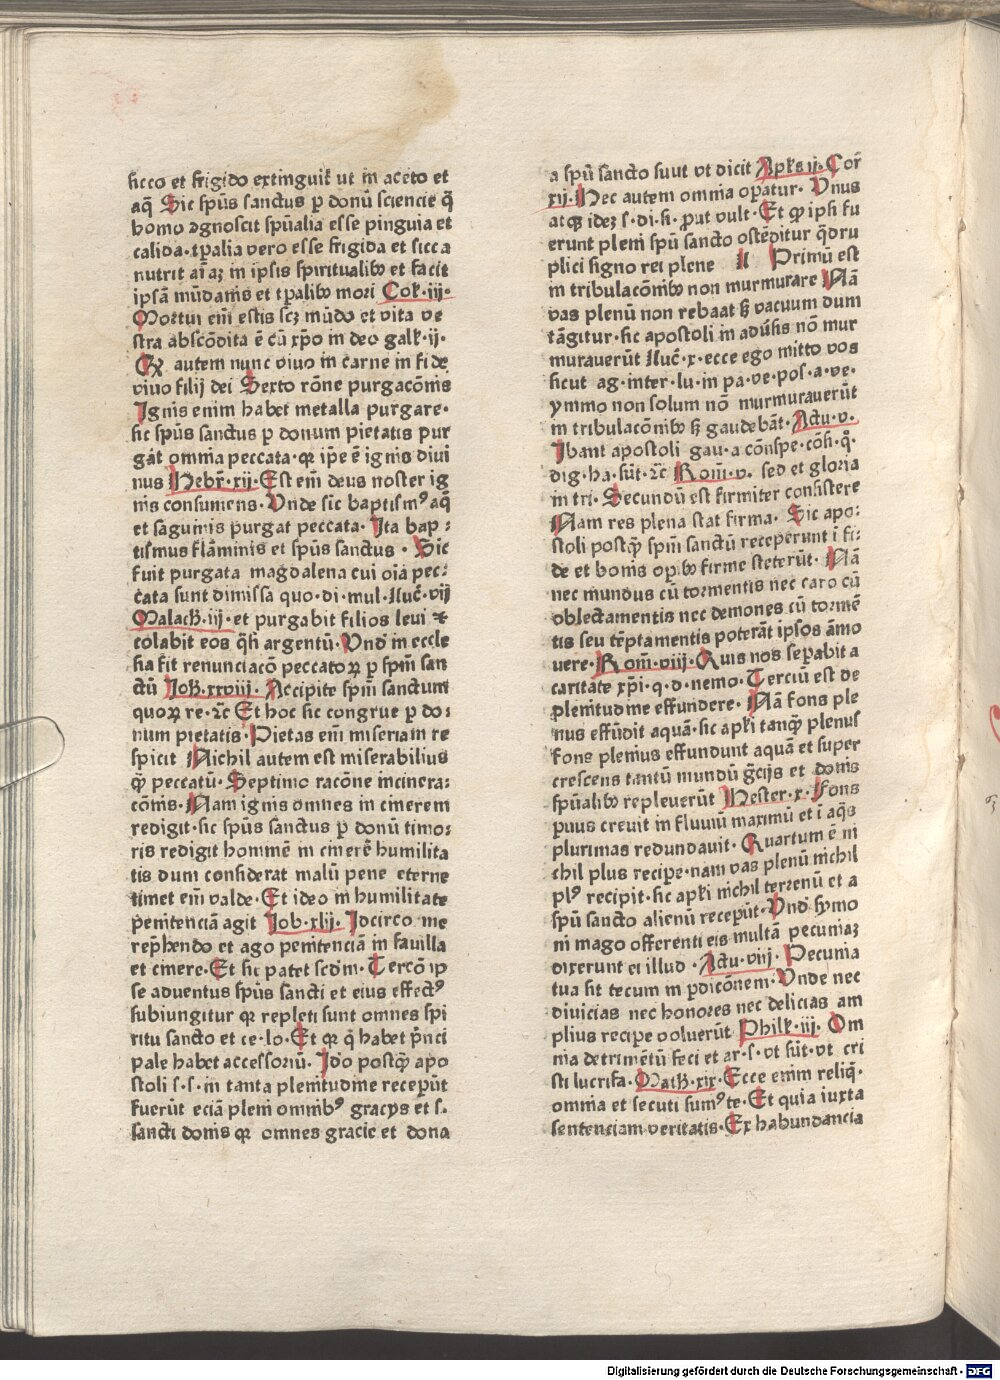 sicco et frigido extinguit̄ ut in aceto et
aq̄ Sic spūs sanctus p̱ donū sciencie q̄
homo ꝯgnoscit spūalia esse pinguia et
calida·tp̄alia vero esse frigida et sicca
nutrit aīaꝫ in ipsis spiritualibꝰ et facit
ipsā mūdanis et tp̄alibꝰ mori Col̄·iij·
Mortui em̄ estis scꝫ mūdo et vita ve
stra abscōdita ē cū xp̄o in deo gall̄·ij·
Qꝫ autem nunc viuo in carne in fide
viuo filij dei Sexto rōne purgacōnis
Ignis enim habet metalla purgare·
sic spūs sanctus p̱ donum pietatis pur
gāt omnia peccata·qꝛ ipe ē ignis diui
nus Hebr̄·xij·Est em̄ deus noster ig
nis consumens·Vnde sic baptismꝰ aq̄
et saguinis purgat peccata·Ita bap⸗
tismus flāminis et spūs sanctus · Sic
fuit purgata magdalena cui oīa pec⸗
cata sunt dimissa quo·di·mul·Luc̄·vij
Malach̄·iij·et purgabit filios leui ⁊
colabit eos q̄si argentū·Vnd̄ in eccle
sia fit renunciacō peccatoꝝ p̱ spm̄ san
ctū Joh̄·xxviij· Accipite spm̄ sanctum
quoꝝ re·⁊c̄ Et hoc sic congrue p̱ do⸗
num pietatis·Pietas em̄ miseriam re
spicit Nichil autem est miserabilius
q̄ꝫ peccatū·Septimo racōne incinera⸗
cōnis·Nam ignis omnes in cinerem
redigit·sic spūs sanctus p̱ donū timo⸗
ris redigit hominē in cinerē humilita
tis dum considerat malū pene eterne
timet em̄ valde·Et ideo in humilitate
penitenciā agit Job·xlij·Idcirco me
rep̱hendo et ago penitenciā in fauilla
et cinere·Et sic patet scd̄m·Tercō ip
se aduentus spūs sancti et eius effectꝰ
subiungitur qꝛ repleti sunt omnes spi
ritu sancto et ce·lo·Et qꝛ q̄ habet p̄nci
pale habet accessoriū· Ido postq̄ꝫ apo
stoli s·s·in tanta plenitudine recepūt
fuerūt eciā pleni omnibꝰ gracijs et s·
sancti donis qꝛ omnes gracie et dona
a spū sancto sunt vt dicit Apl̄s ij·Cor̄
xij·Hec autem omnia oꝑatur· Vnus
atqꝫ ideꝫ s·di·si·ꝓut vult·Et ꝙ ipsi fu
erunt pleni spū sancto ostēditur q̄dru
plici signo rei plene ¶ Primū est
in tribulacōnibꝰ non murmurare Nā
vas plenū non rebaat sꝫ vacuum dum
tāgitur·sic apostoli in adūsis nō mur
murauerūt Luc̄·x·ecce ego mitto vos
sicut ag·inter·lu·in pa·ve·pos·a·ve·
ymmo non solum nō murmurauerūt
in tribulacōnibꝰ sꝫ gaudebāt·Actu·v·
Ibant apostoli gau·a cōnspe·cōn̄·q̄·
dig·ha·sūt·⁊c̄ Rom̄·v· sed et gloria
in tri·Secundū est firmiter consistere
Nam res plena stat firma· Sic apo⸗
stoli postq̄ꝫ spm̄ sanctū receperunt ī fi⸗
de et bonis oꝑibꝰ firme steterūt· Nā
nec mundus cū tormentis nec caro cū
oblectamentis nec demones cū tormē
tis seu tēptamentis poterāt ipsos āmo
uere·Rom̄·viij·Quis nos sepabit a
caritate xp̄i·q·d·nemo·Terciū est de
plenitudine effundere· Nā fons ple
nus effūdit aquā·sic apl̄i tanq̄ꝫ plenus
fons plenius effundunt aquā et super
crescens tantū mundū gr̄cijs et donis
spūalibꝰ repleuerūt Hester·x·Fons
ꝑuus creuit in fluuiū maximū et ī aq̄s
plurimas redundauit· Quartum ē ni
chil plus recipe·nam vas plenū nichil
plꝰ recipit·sic apl̄i nichil terrenū et a
spū sancto alienū recepūt·Vnd̄ symo
ni mago offerenti eis multā pecuniaꝫ
dixerunt ei illud ·Actu·viij·Pecunia
tua sit tecum in ꝑdicōnem·Vnde nec
diuicias nec honores nec delicias am
plius recipe voluerūt Phil̄·iij· Om
nia detrimētū feci et ar·s·vt sūt·vt cri
sti lucrifa·Math̄·xix·Ecce enim reliq̄·
omnia et secuti sumꝰ te·Et quia iuxta
sentenciam veritatis·Ex habundancia
Digitalisierung gefördert durch die Deutsche Forschungsgemeinschaft · DFG